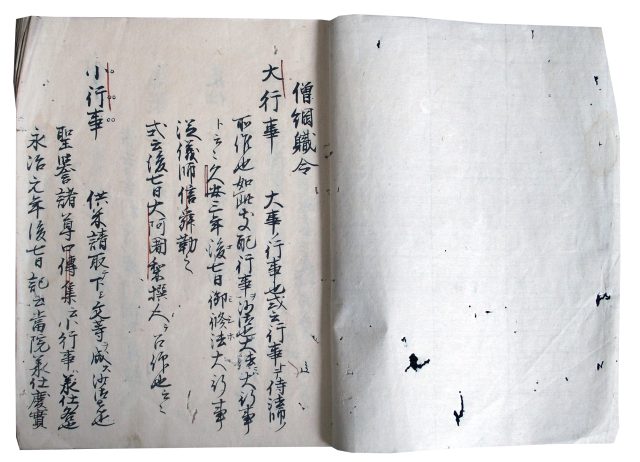 僧綱職令
大行事 大事行事也或云行事ヲ侍法師
所作也如此支配行事沙汰也大法大行事
ト云々久安三年後七日御修法大行事
従儀師信舜勤之
式云後七日大阿闍梨撰人ヲ召仰也云々
小行事 供米請取下文等成ス沙汰也
聖誉諸尊口傳集云小行事承仕
永治元年後七日記云當院承仕慶實